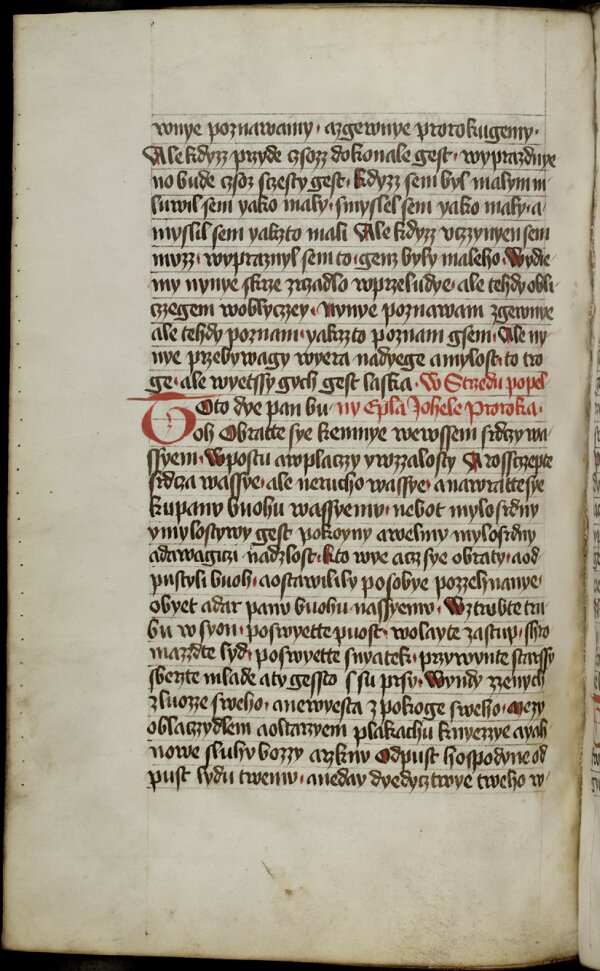 wnye poznawamy · azgewnye prorokugemy ·
Ale kdyzz przyde czsozz dokonale gest · wyprazdnye
no bude czsoz sczesty gest · kdyzz sem byl malym m
luwil sem yako maly · smyslel sem yako maly · a
myslil sem yakzto mali Ale kdyzz vczynyen sem
muzz · wypraznyl sem to · genz byly maleho · Wydie
my nynye skrze zrzadlo wprzeludye · ale tehdy obli
czegem woblyczey · Nynye poznawam zgewnye
ale tehdy poznam · yakzto poznam gsem · Ale ny
nye przebywagy wyera nadyege a mylost · to tro
ge · ale wyetssy gych gest laska · W Strzedu popel
Toto dye pan bu ny Epla Johele Proroka ·
oh Obratte sye kemnye wewssem srdczy wa
ssyem · Wpostu awplaczy ywzzalosty Arossczepte
srdcza wassye · ale nerucho wassye · anawrattesye
kupanu buohu wassyemu · nebot mylosrdny
ymylostywy gest pokoyny awelmy mylosrdny
adawagiczi nadzlost · kto wye acz sye obraty · aod
pustyli buoh · aostawilily posobye pozzehnanye ·
obyet adar panu buohu nassyemu · Wztrubte tru
bu w syon · poswyette puost · wolayte zastup · shro
mazzdte lyd · poswyette snyatek · przywynte starssy
sberzte mlade aty gessto ssu prsy · Wyndy zzenych
zluozze sweho · anewyesta zpokoge sweho · Mezy
oblaczydlem aoltarzyem plakachu knyezzye ayah
nowe sluhy bozzy arzknu Odpust hospodyne od
pust lydu twemu · aneday dyedycztwye tweho w